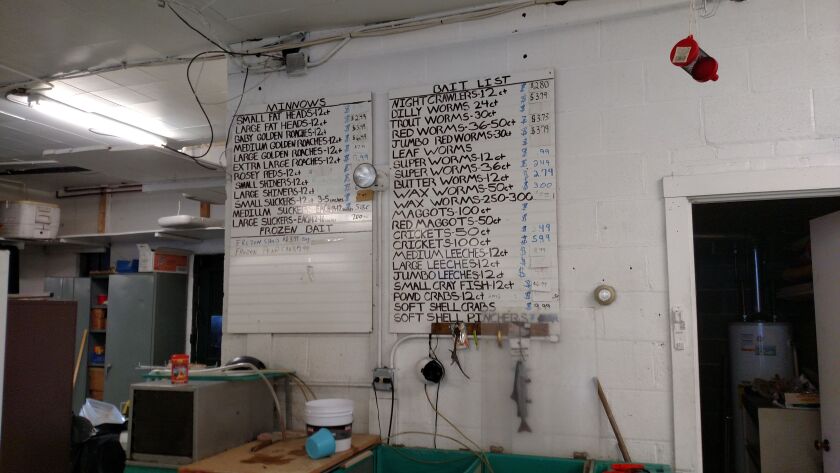 MINNOWS
SMALL FAT HEADS-12ct $2.99
LARGE FAT HEADS-12ct
BABY GOLDEN ROACHES-12ct
MEDIUM GOLDEN ROACHES-12ct
LARGE GOLDEN ROACHES-12ct
EXTRA LARGE ROACHES-12ct
ROSEY REDS-12ct
SMALL SHINERS-12ct
LARGE SHINERS-12ct
SMALL SUCKERS-12ct 3-5 inches
MEDIUM SUCKERS-EACH
LARGE SUCKERS-EACH
FROZEN BAIT
BAIT LIST
NIGHTCRAWLERS-12ct $2.80
DILLY WORMS 24ct $3.79
TROUT WORMS-30ct
RED WORMS-36-50ct $3.75
JUMBO RED WORMS-30ct $3.79
LEAF WORMS
SUPER WORMS-12ct .99
SUPER WORMS-36ct 2.49
BUTTER WORMS-12ct 2.79
WAX WORMS-50ct 3.00
WAX WORMS-250-300
MAGGOTS-100ct
RED MAGGOTS-50ct
CRICKETS-50ct
CRICKETS-100ct 5.99
MEDIUM LEECHES-12ct
LARGE LEECHES-12ct
JUMBO LEECHES-12ct
SMALL CRAY FISH-12ct
POND CRABS-12ct
SOFT SHELL CRABS 9.99
SOFT SHELL PINCHERS